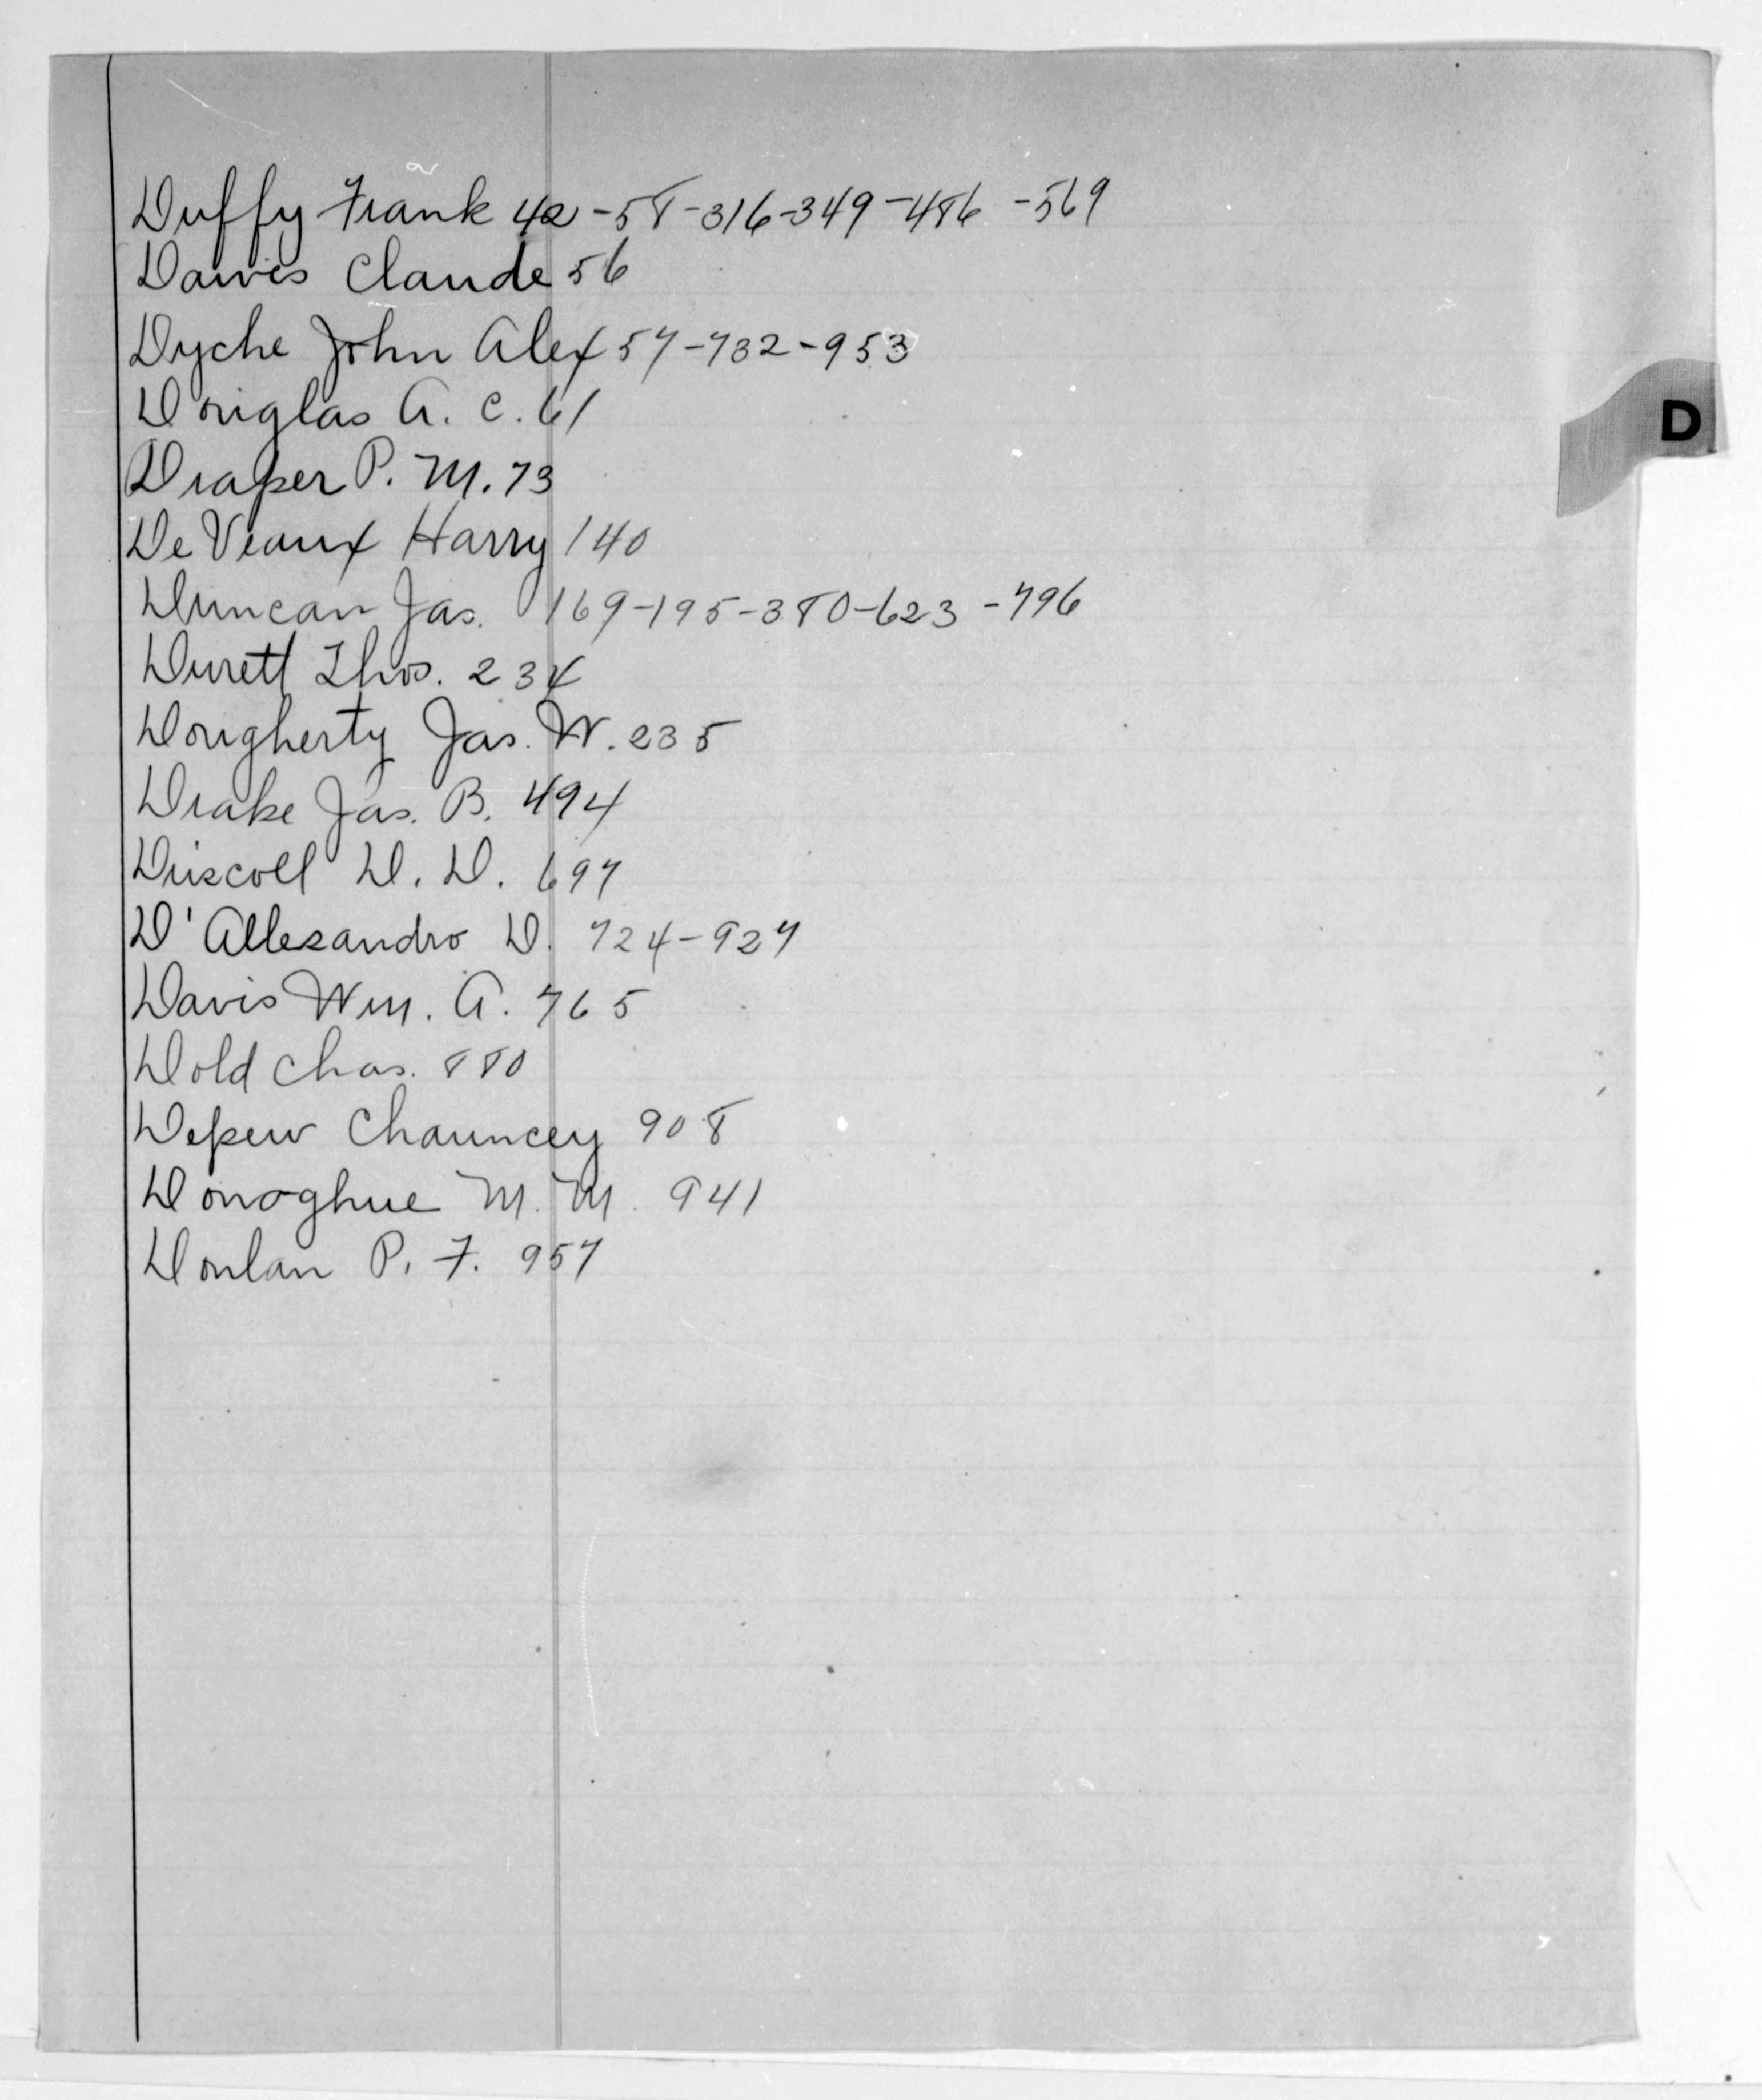 Duffy Frank 42-58-316-349-486-569
Davies Claude 56
Dyche John Alex 57-732-953
D
Douglas A. C. 61
Draper P. M. 73
De Veaux Harry 140
Duncan Jas. 169-195-380-623-796
Durett Thos. 234
Dougherty Jas. W. 235
Drake Jas. B. 494
Driscoll D. D. 697
D'Allesandro D. 724-927
Davis Wm. A. 765
Dold Chas. 880
Depew Chauncey 908
Donoghue M. M. 941
Donlan P. F. 957